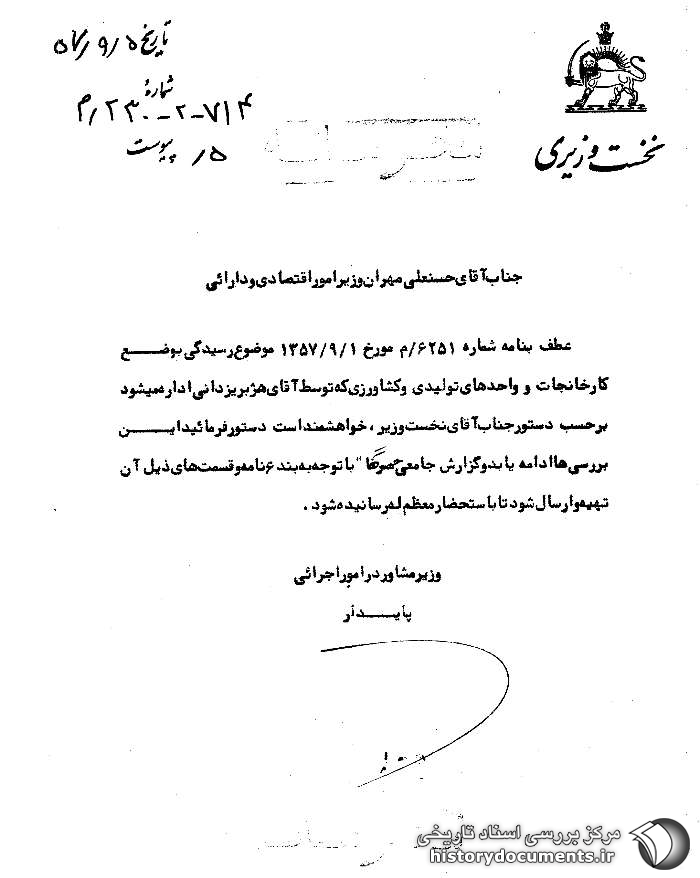 نخست وزیری
تاریخ ۵ /۹ /۵۷
شمارهٔ
۲۳۰-۲-۷۱۴ /م
پیوست
جناب آقای حسنعلی مهران وزیر امور اقتصادی و دارائی
عطف بنامه شماره ۶۲۵۱/م مورخ ۱۳۵۷/۹/۱ موضوع رسیدگی بوضع
کارخانجات و واحدهای تولیدی و کشاورزی که توسط آقای هژبر یزدانی اداره میشود
برحسب دستور جناب آقای نخست وزیر ، خواهشمند است دستور فرمائید این
بررسی ها ادامه یابد و گزارش جامعی با توجه به بند ۶ نامه و قسمت های ذیل آن
تهیه و ارسال شود تا با ستحضار معظم له رسانیده شود .
وزیر مشاور در امور اجرائی
پایدار
مرکز بررسی اسناد تاریخی
historydocuments.ir